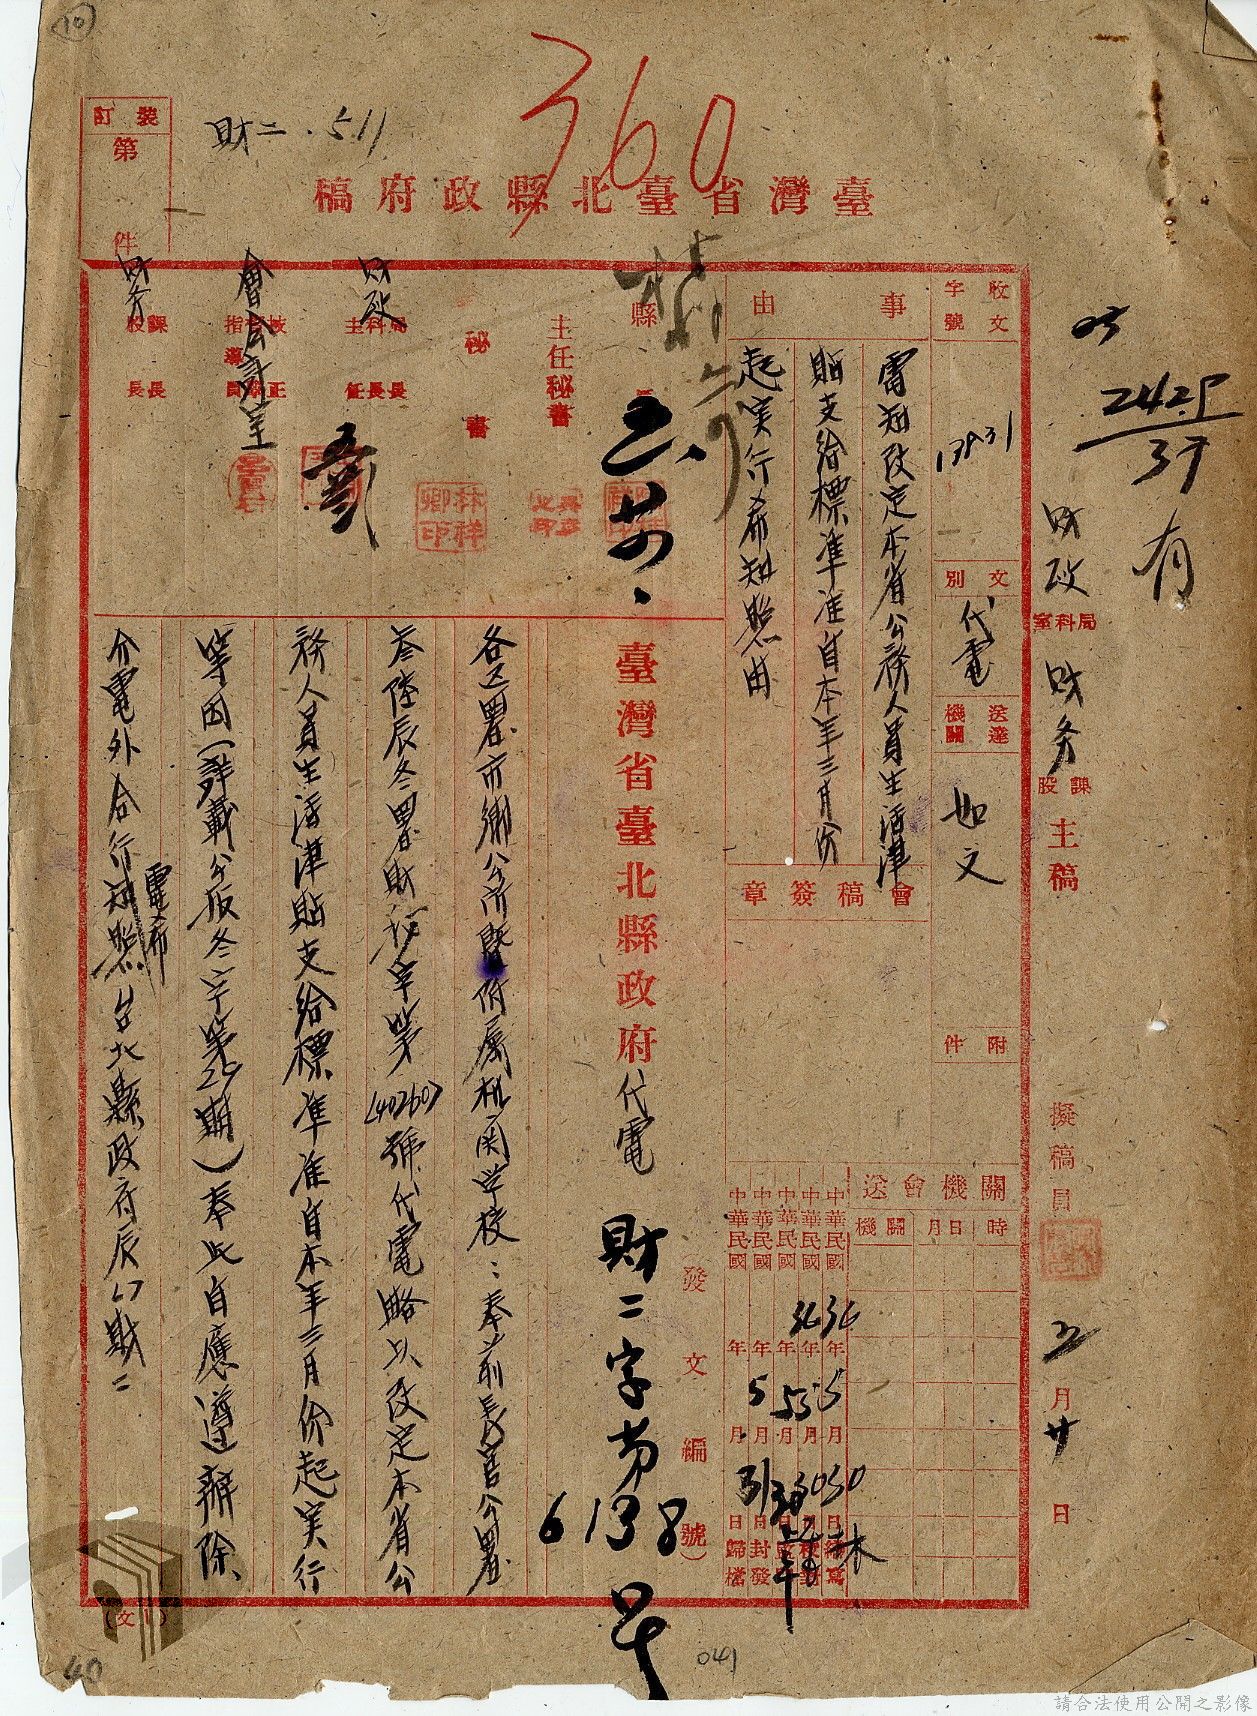 10
360
財二.511
裝訂
第
件
臺灣省臺北縣政府稿
2425
37
有
財政
局科室
財务
課股
主稿
擬稿員
五月廿日
收文字號
13831
文別
代電
送達機關
如文
附件
事由
電知改定本省公務人員生活津
貼支給標準准自本年三月份
起实行希知照由
會稿簽章
關機會送
時
月日
關機
中華民國36年5月30日繕寫
中華民國36年5月30日校對
中華民國
年5月
中華民國
年5月31日封發
中華民國
年
月
日歸檔
縣長
主任秘書
秘書
林祥卿印
財政
局科主
長長任
技正
指導員
會会計室
財务
課股
長長
臺灣省臺北縣政府代電
財二字第61388号
(發文編號)
各区署市鄉公所暨附屬机関学校：奉前長官公署
叁陸辰冬署財
字第(40260)號代電略以改定本省公
務人員生活津貼支給標準准自本年三月份起实行
等因(詳載公报冬字第29期)奉此自應遵辦除
介電外合行電希知照台北縣政府辰
財二
041
40
請合法使用公開之影像